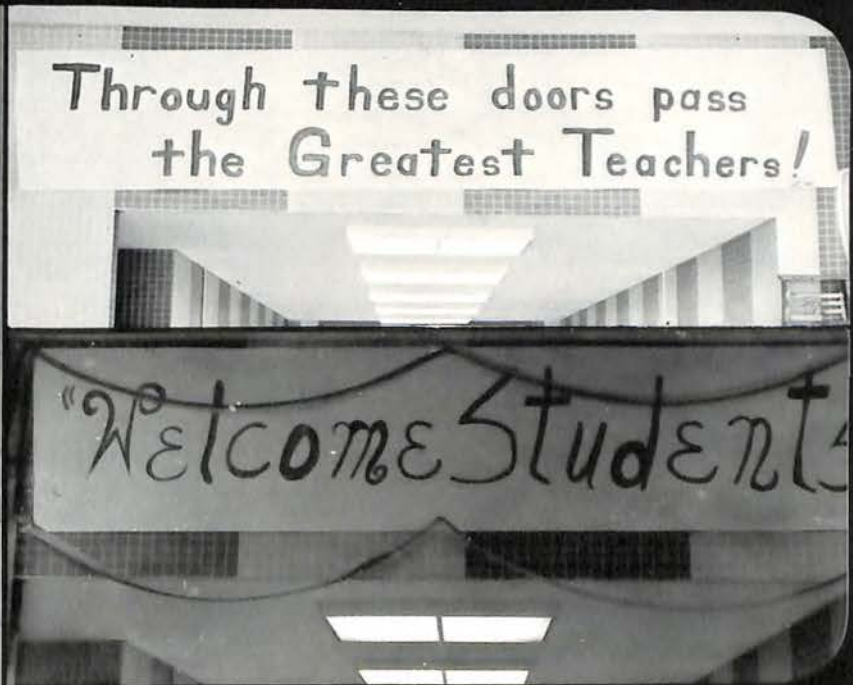 Through these doors pass
the Greatest Teachers!
"Welcome Students